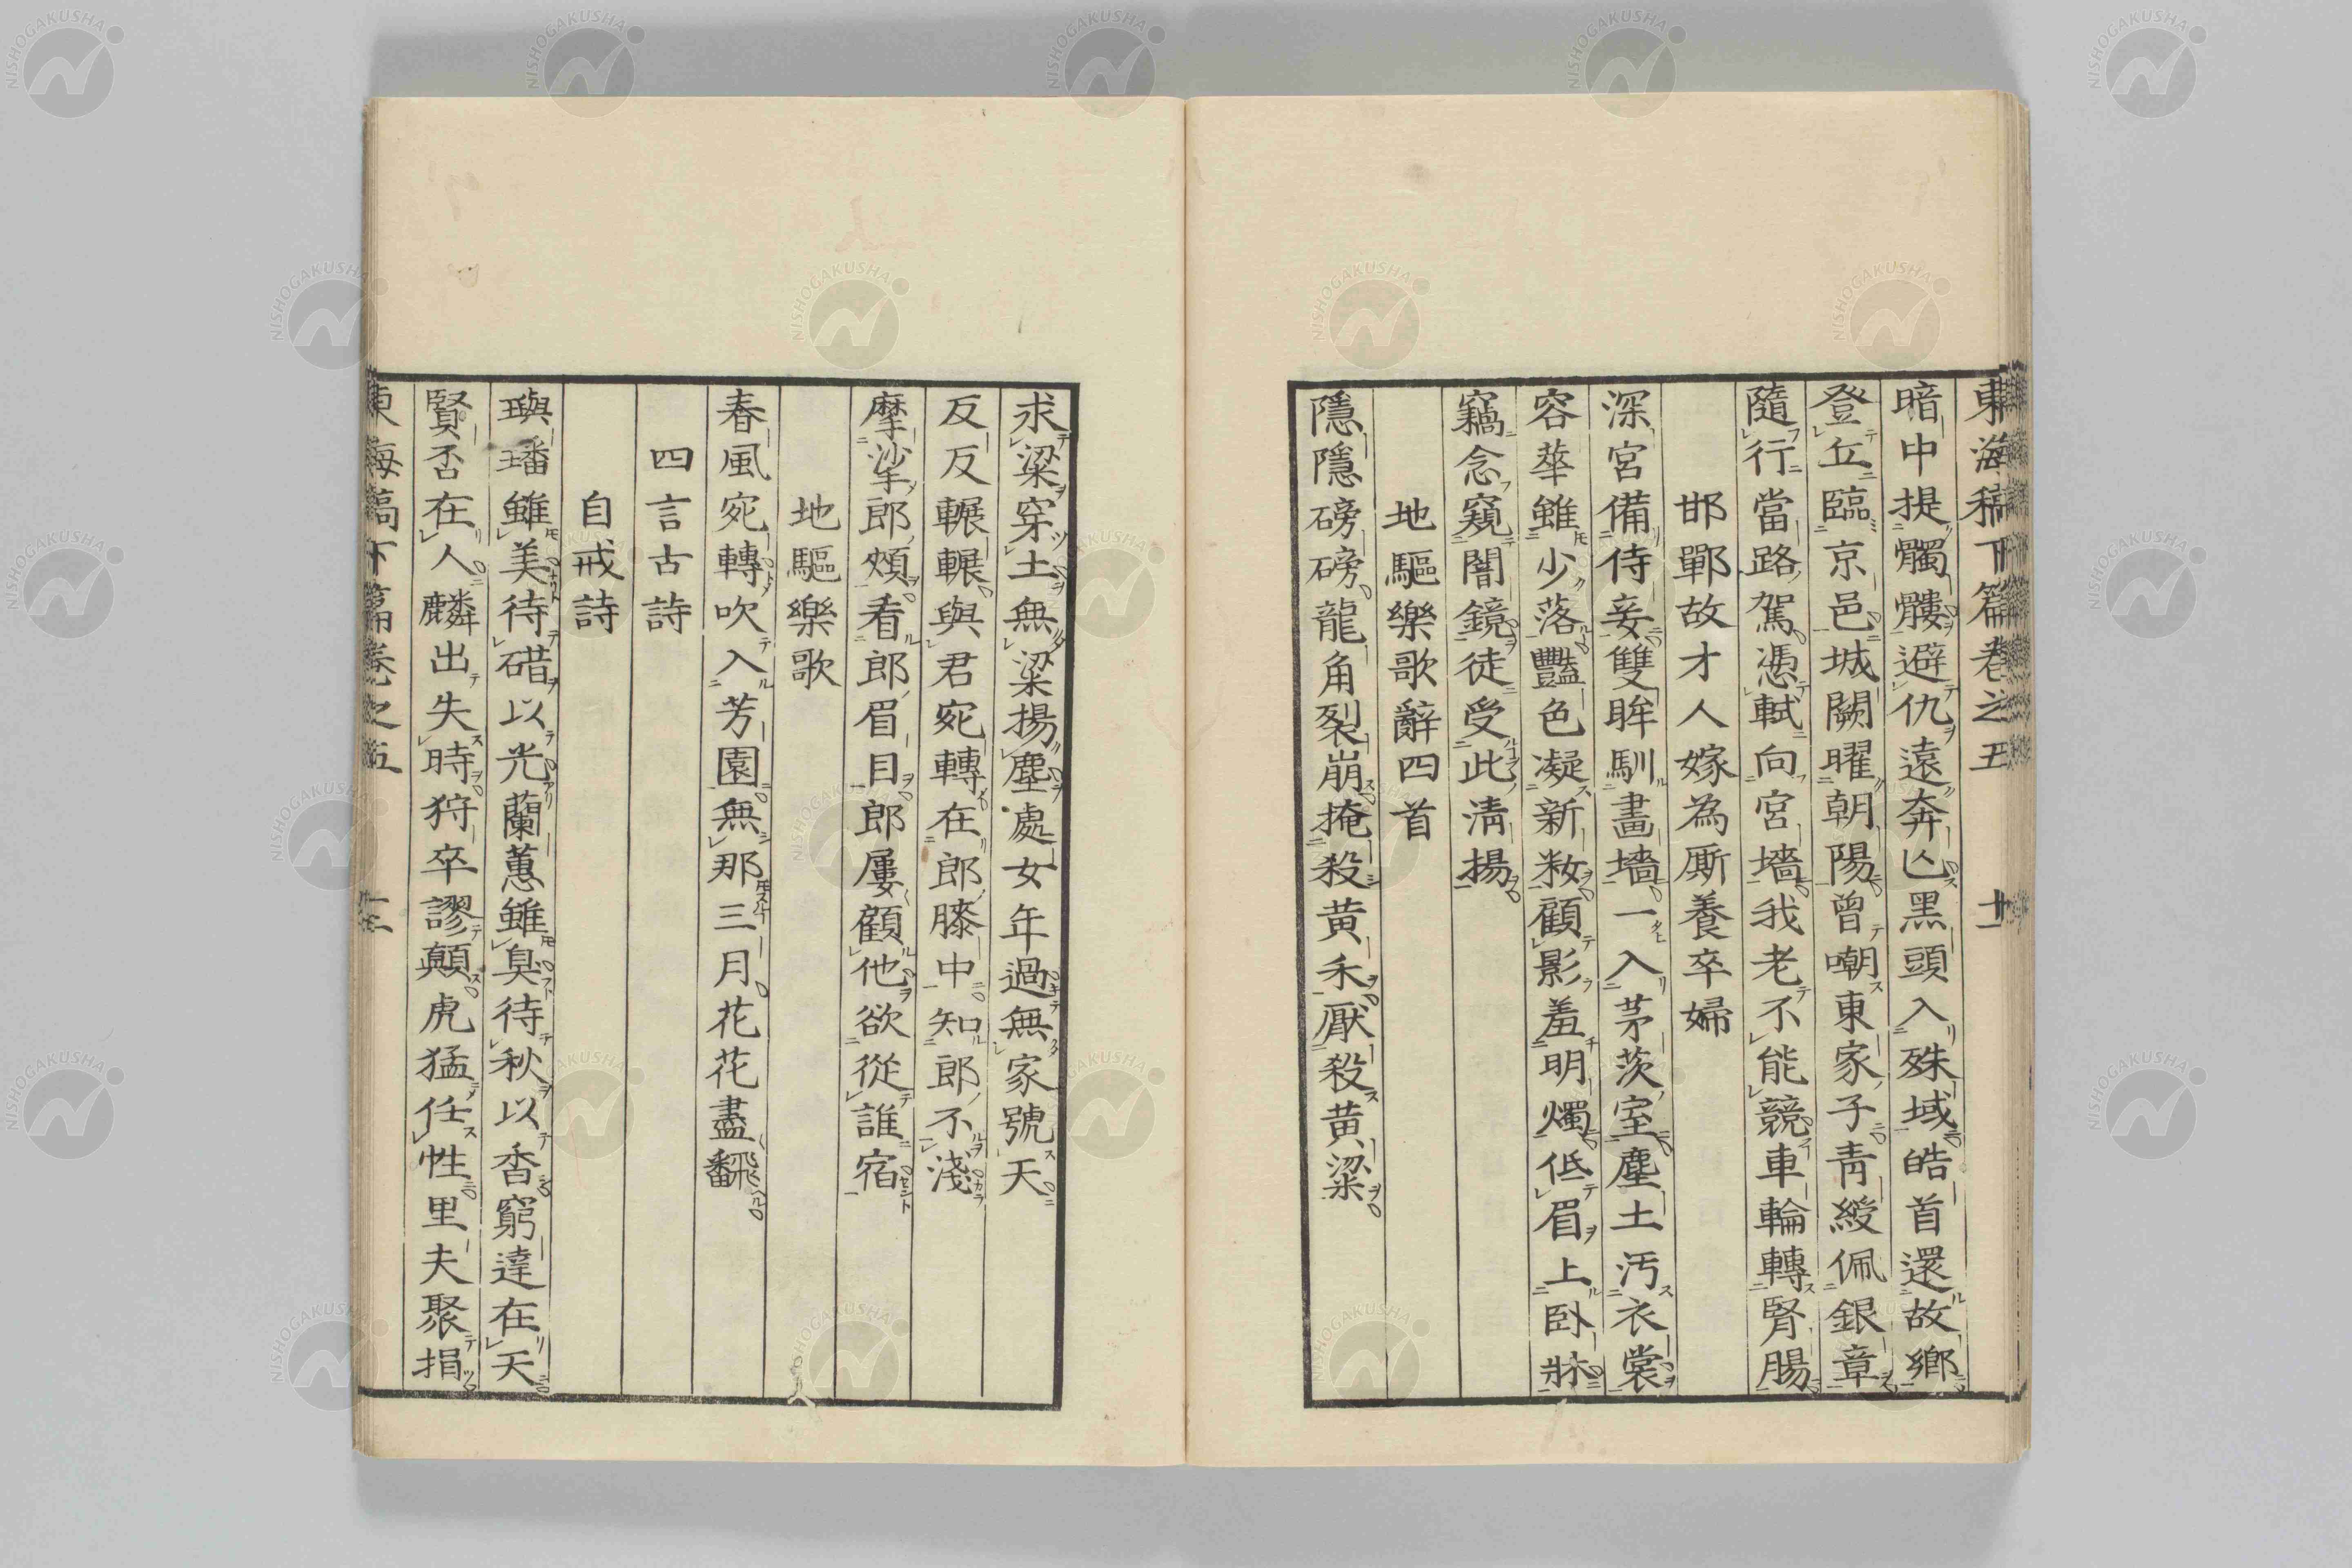 東海稿下篇卷之五
暗中提髑髏避仇遠奔亾黑頭入殊域皓首還故鄉
登丘臨京邑城闕曜朝陽曾嘲東家子靑綬佩銀章
隨行當路駕憑軾向宮墻我老不能競車輪轉腎腸
邯鄲故才人嫁為厮養卒婦
深宮備侍妾雙眸馴畫墻一入茅茨室塵土汚衣裳
容華雖少落豔色凝新粧顧影羞明燭低眉上臥牀
竊念窺闇鏡徒受此淸揚
地驅樂歌辭四首
隱隱磅磅龍角裂崩掩殺黄禾厭殺黄粱
求梁穿土無梁揚塵處女年過無家號天
反反輾輾與君宛轉在郎膝中知郎不淺
摩挲郎頰看郎眉目郎屢顧他欲從誰宿
地驅樂歌
春風宛轉吹入芳園無那三月花花盡飜
四言古詩
自戒詩
璵璠雖美待䃈以光蘭蕙雖臭待秋以香窮達在天
賢否在人麟出失時狩卒謬顛虎猛任性里夫聚捐
東海稿下篇卷之五
NISHOGAKUSHA